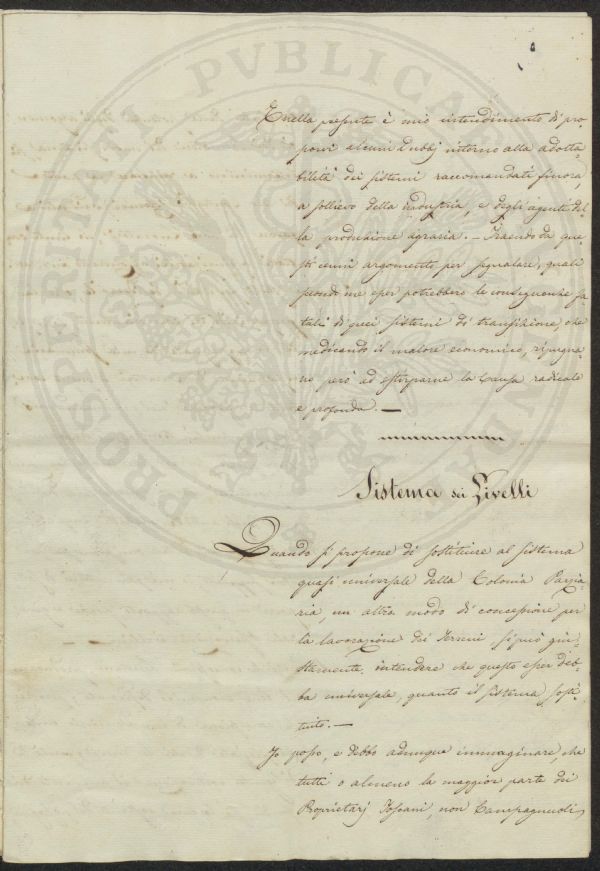 PROSPERITATI PVBLICAE
E nella presente è mio intendimento di pro-
porvi alcuni Dubbj intorno alla adotta-
bilità dei sistemi raccomandati finora,
a sollievo della industria, e degli agenti del-
la produzione agraria. — Traendo da que-
sti cenni argomento per segnalare, quali
secondo me esser potrebbero le conseguenze fa-
tali di quei sistemi di transizione, che
medicando il malore economico, ripugna-
no però ad estirparne la Causa radicale
e profonda. —
Sistema dei Livelli
Quando si propone di sostituire al sistema
quasi universale della Colonia Parzia-
ria, un altro modo di concessione per
la lavorazione dei Terreni, si può giu-
stamente intendere che questo esser deb-
ba universale, quanto il sistema sosti-
tuito. —
Io posso, e debbo adunque immaginare, che
tutti o almeno la maggior parte dei
Proprietarj Toscani, non Campagnuoli,